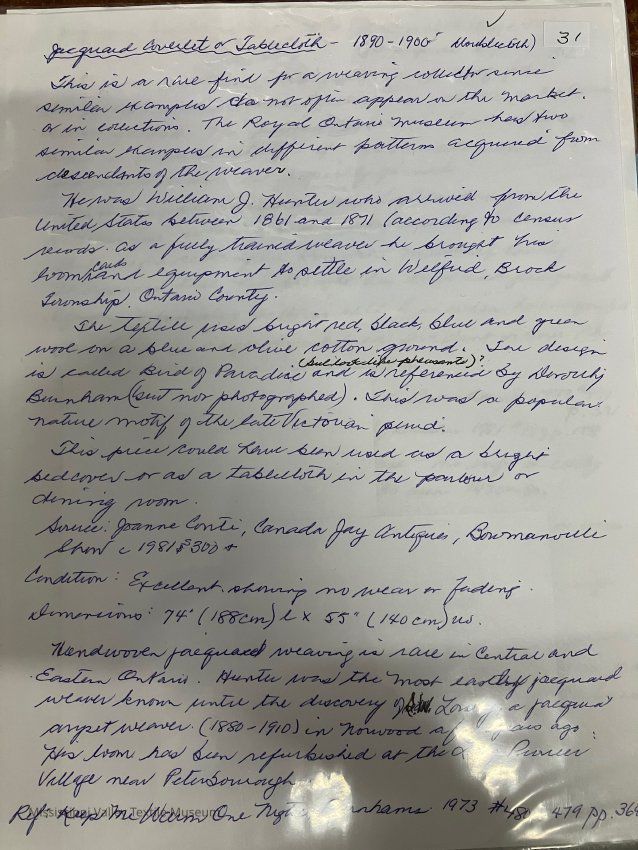 31
Jacquard Coverlet or Tablecloth - 1890-1900
This is a rare find for a weaving collector since
similar examples do not often appear on the market
or in collections. The Royal Ontario Museum has two
similar examples in different patterns acquired from
descendants of the weaver.
He was William J. Hunter who arrived from the
United States between 1861 and 1871 (according to census
records. As a fully trained weaver he brought his
loom, cards and equipment to settle in Welfrid, Brock
Township, Ontario County.
The textile used bright red, black, blue and green
wool on a blue and olive cotton ground. The design
is called Bird of Paradise (but looks like pheasants)? and is referenced by Dorothy
Burnham (but not photographed). This was a popular
nature motif of the late Victorian period.
This piece could have been used as a bright
bedcover or as a tablecloth in the parlour or
dining room.
Source: Joanne Conti, Canada Jay Antiques, Bowmanville
Show c 1981 $300
Condition: Excellent showing no wear or fading.
Dimensions: 74" (188cm) l x 55" (140cm) w.
Handwoven jacquard weaving is rare in Central and
Eastern Ontario. Hunter was the most easterly jacquard
weaver known until the discovery of a jacquard
carpet weaver (1880-1910) in Norwood a ago.
His loom has been refurbished at the Pioneer
Village near Peterborough
Mississippi Valley Textile Museum
Ref Keep Me Warm One Night Burnhams 1973 #480, 479 pp. 364